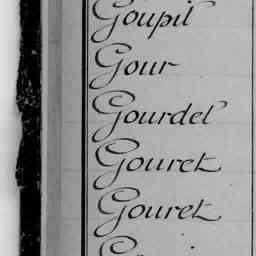 Goupil
Gour
Gourdel
Gouret
Gouret